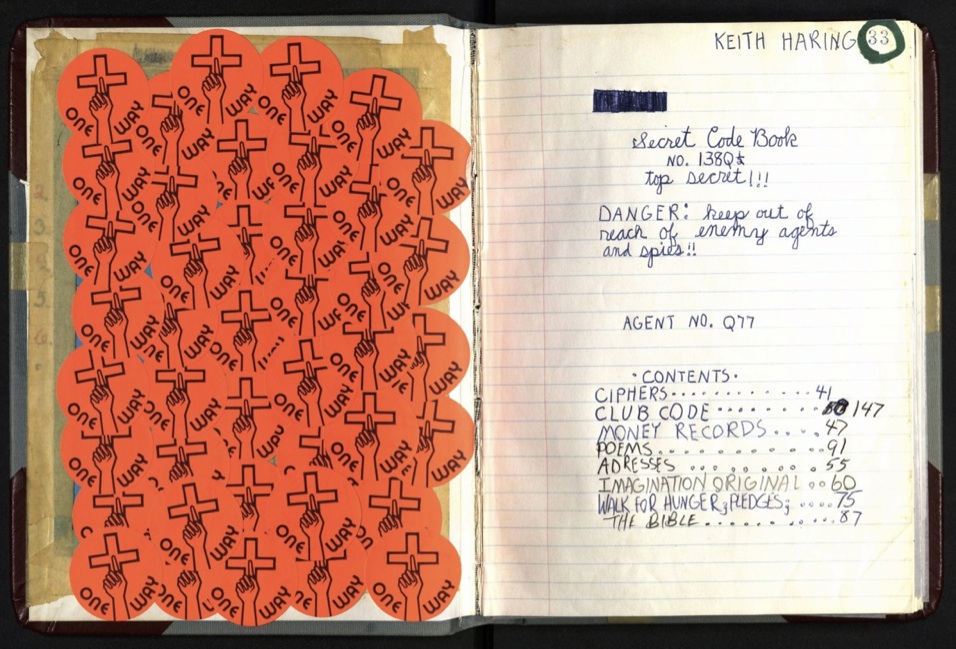 ONE WAY
ONE WAY
ONE WAY
ONE WAY
ONE WAY
ONE WAY
ONE
ONE WAY
ONE WAY
ONE WAY
ONE WAY
ONE
ONE WAY
ONE WAY
ONE WAY
ONE
ONE WAY
ONE WAY
ONE WAY
ONE WAY
ONE WAY
WAY
ONE WAY
ONE WAY
ONE WAY
WAY
ONE WAY
ONE WAY
ONE WAY
ONE WAY
ONE WAY
WAY
ONE WAY
KEITH HARING 33
Secret Code Book
NO. 138Q
top secret!!!
DANGER: keep out of
reach of enemy agents
and spies!!
AGENT NO. Q77
·CONTENTS·
CIPHERS.......... 41
CLUB CODE ....... 147
MONEY RECORDS .... 47
POEMS............ 91
ADRESSES ........ 55
IMAGINATION ORIGINAL .. 60
WALK FOR HUNGER; PLEDGES; .... 75
THE BIBLE......... 87